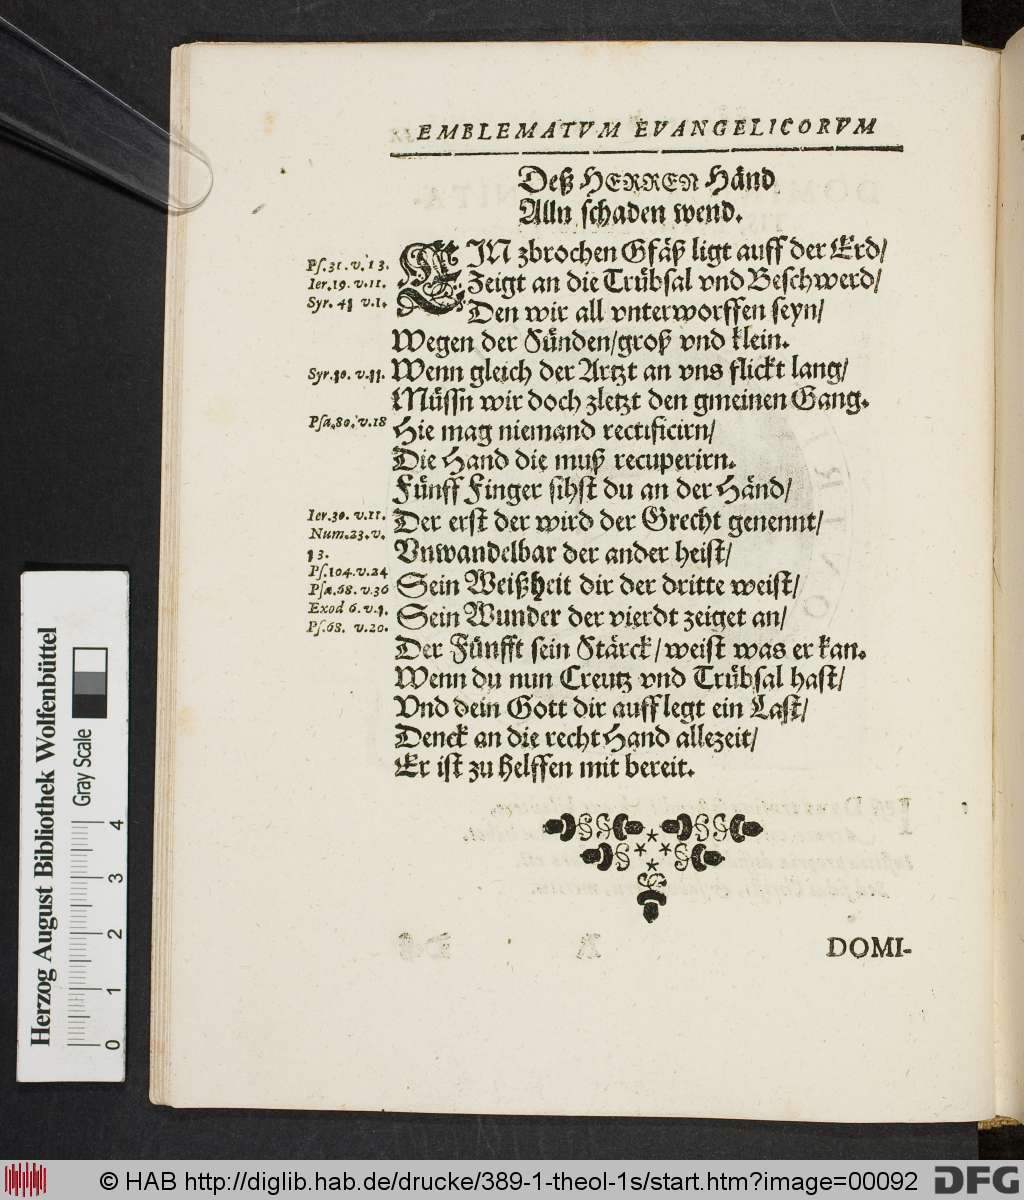 EMBLEMATVM EVANGELICORVM
Deß HERREN Händ
Alln schaden wend.
EIN zbrochen Gfäß ligt auff der Erd/
Zeigt an die Trübsal vnd Beschwerd/
Den wir all vnterworffen seyn/
Wegen der Sünden/groß vnd klein.
Wenn gleich der Artzt an vns flickt lang/
Müssn wir doch zletzt den gmeinen Gang.
Hie mag niemand rectificirn/
Die Hand die muß recuperirn.
Fünff Finger sihst du an der Händ/
Der erst der wird der Grecht genennt/
Vnwandelbar der ander heist/
Sein Weißheit dir der dritte weist/
Sein Wunder der vierdt zeiget an/
Der Fünfft sein Stärck/weist was er kan.
Wenn du nun Creutz vnd Trübsal hast/
Vnd dein Gott dir aufflegt ein Last/
Denck an die recht Hand allezeit/
Er ist zu helffen mit bereit.
Ps. 31. v. 13.
Ier. 19. v. 11.
Syr. 41 v. 1.
Syr. 10. v. 11.
Psa. 80. v. 18
Ier. 30. v. 11.
Num. 23. v.
13.
Ps. 104. v. 24
Psa. 68. v. 36
Exod 6. v. 1.
Ps. 68. v. 20.
DOMI-
Herzog August Bibliothek Wolfenbüttel
Gray Scale
0 1 2 3 4
© HAB http://diglib.hab.de/drucke/389-1-theol-1s/start.htm?image=00092
DFG